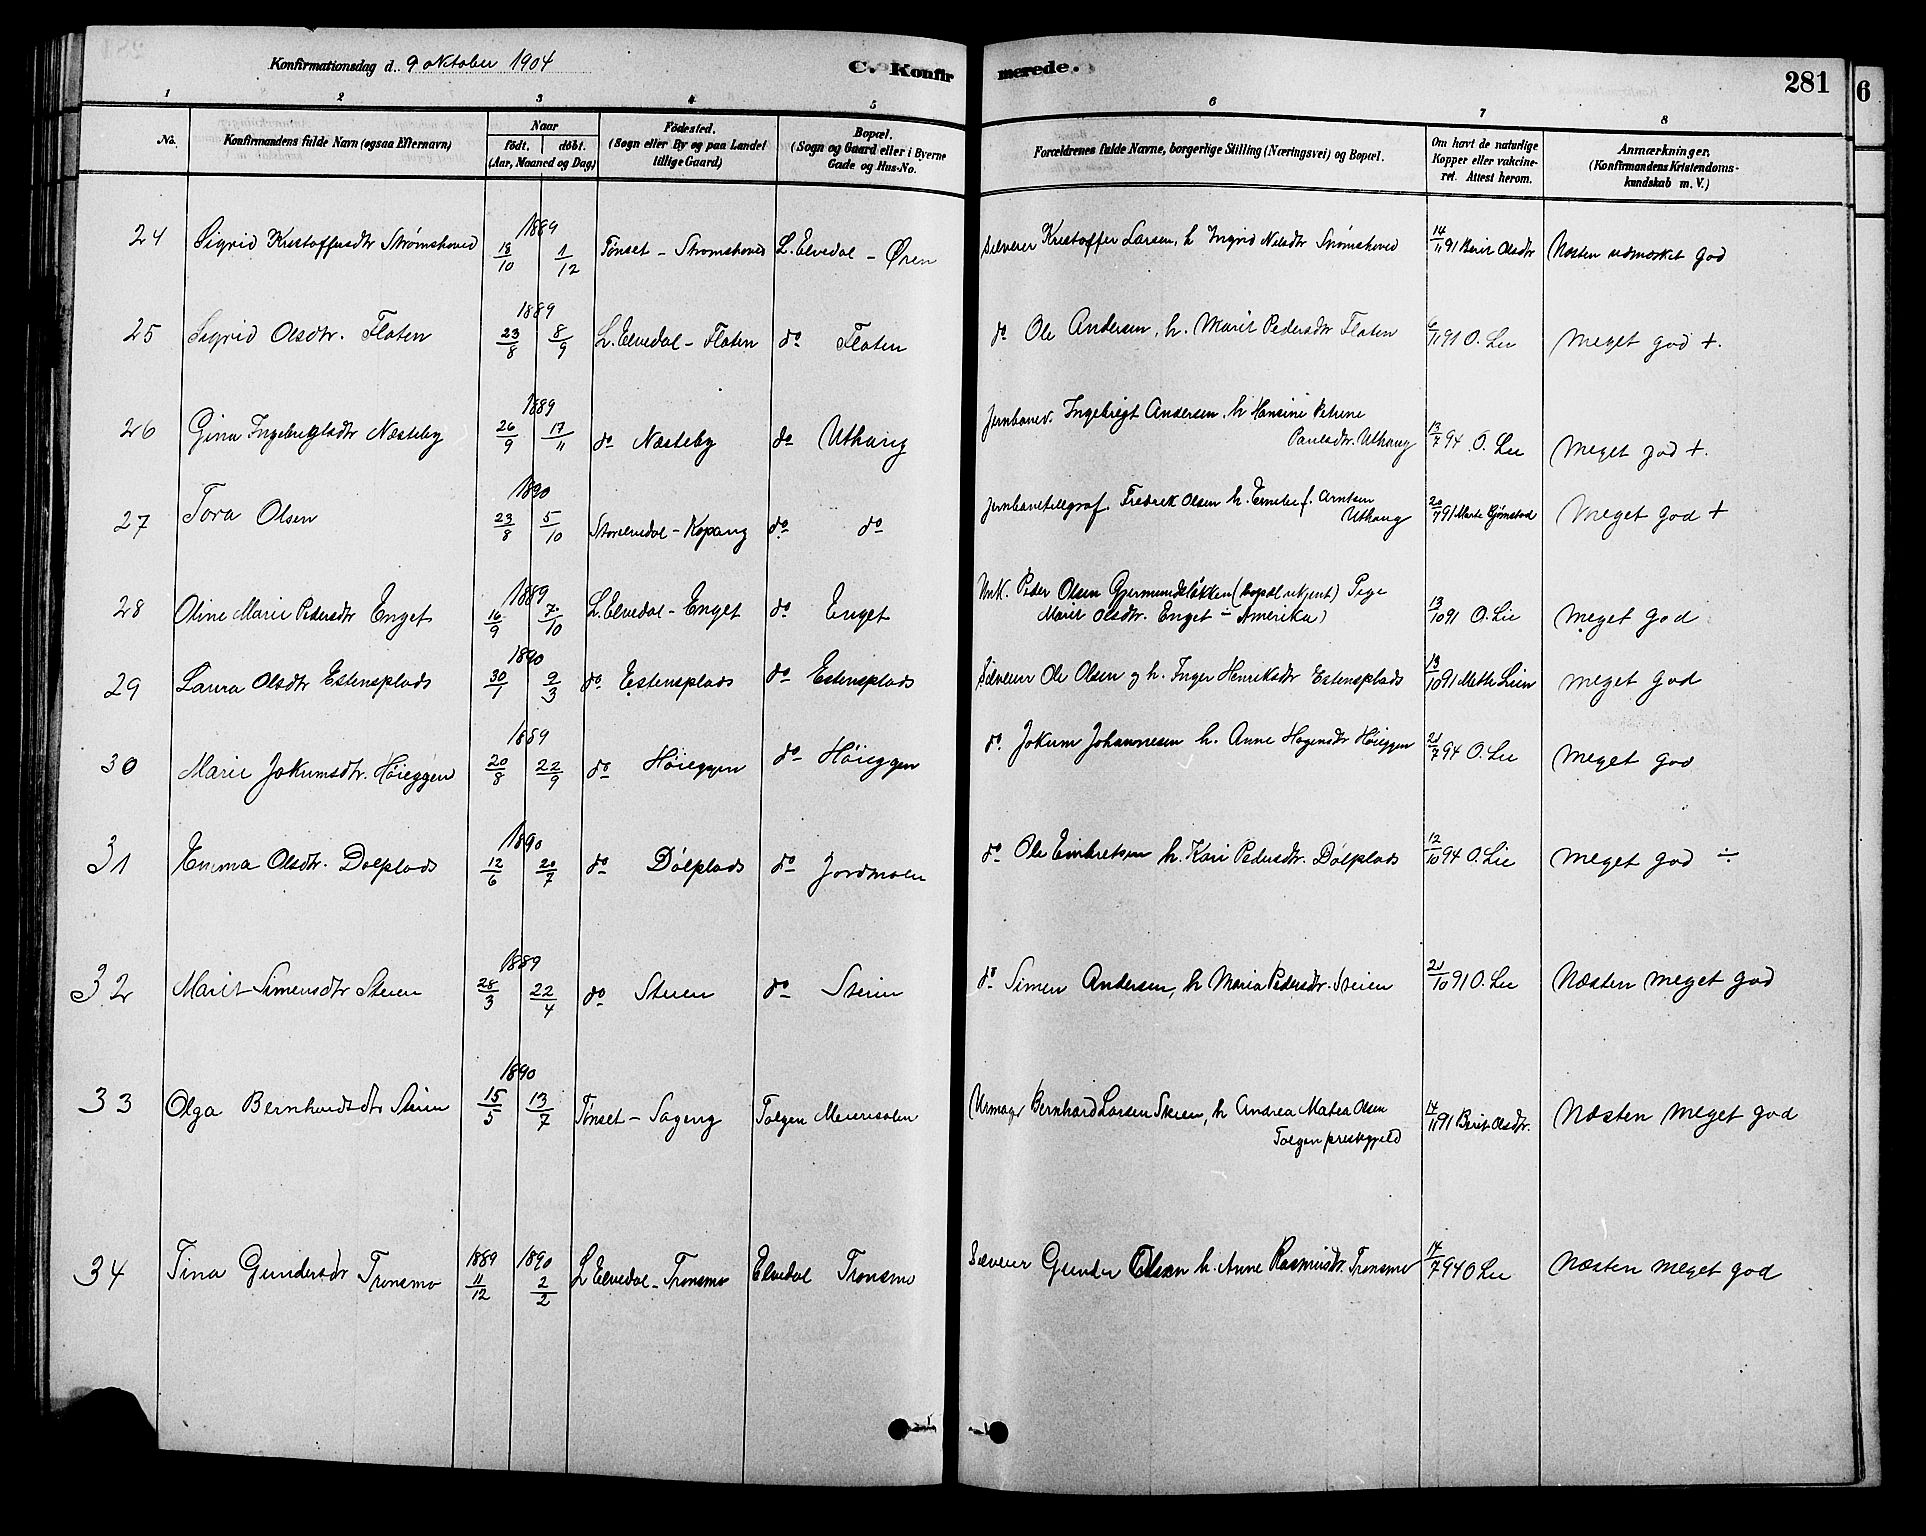 Konfirmationsdag d. 9 oktober 1904
C. Konfirmerede.
281
6
1 2 3 4 5 6 7 8
No.
Konfirmandens fulde Navn (ogsaa Efternavn)
Naar
Födt. döbt.
(Aar, Maaned og Dag)
Födested.
(Sogn eller By og paa Landet
tillige Gaard)
Bopæl.
(Sogn og Gaard eller i Byerne
Gade og Hus-No.
Forældrenes fulde Navne, borgerlige Stilling (Næringsvei) og Bopæl.
Om havt de naturlige
Kopper eller vakcine-
ret. Attest herom.
Anmærkninger,
(Konfirmandens Kristendoms-
kundskab m. V.)
24 Sigrid Kristoffersdtr Strømshoved 1889 18/10 1/12 Tönset - Strømshoved L. Elvedal - Øren Selveier Kristoffer Larsen, h Ingrid Nilsdtr Strømshoved 14/11 91 Berit Olsdtr Næsten udmærket god
25 Sigrid Olsdtr. Floten 1889 23/8 8/9 L. Elvedal - Floten do Floten do Ole Andersen, h. Marit Pedersdtr Floten 6/11 91 O. Lie Meget god +.
26 Gina Ingebrigtsdtr Næsteby 1889 26/9 17/11 do Næsteby do Uthaug Jernbanev. Ingebrigt Andersen, h Hansine Petrine
Paulsdtr. Uthaug 13/7 94 O. Lie Meget god +.
27 Tora Olsen 1890 23/8 5/10 Storelvedal - Kopang do do Jernbanetelegraf. Fredrik Olsen h. Emilie f. Arntsen
Uthaug 20/7 91 Marte Gjømstad Meget god +
28 Oline Marie Pedersdtr Enget 1889 16/9 7/10 L. Elvedal - Enget do Enget Unk. Peder Olsen Gjermundsløkken (Bopæl ukjent) Pige
Marit Olsdtr. Enget ÷ Amerika) 13/10 91 O. Lie Meget god
29 Laura Olsdtr Estensplads 1890 30/1 9/3 do Estensplads do Estensplads Selveier Ole Olsen og h. Inger Henriksdtr Estensplads 13/10 91 Mette Lien Meget god
30 Marie Jokumsdtr. Höieggen 1889 20/8 22/9 do Höieggen do Höieggen do. Jokum Johannesen h. Anne Hagensdtr Höieggen 21/7 94 O. Lie Meget god
31 Emma Olsdtr. Dölplads 1890 12/6 20/7 do Dölplads do Jordmoen do Ole Embretsen h. Kari Pedersdtr. Dölplads 12/10 94 O. Lie Meget god ÷
32 Marit Simensdtr Steien 1889 28/3 22/4 do Steien do Steien do Simen Andersen, h Maria Pedersdtr. Steien 21/10 91 O. Lie Næsten meget god
33 Olga Bernhardsdtr Steien 1890 15/5 13/7 Tönset - Sageng Tolgen Urmagr Bernhard Larsen Steien, h Andrea Matea Olsen
Tolgen prestegjeld 14/11 91 Berit Olsdtr. Næsten meget god
34 Tina Gundersdtr Tronsmo 1889 11/12 1890 2/2 L Elvedal - Tronsmo Elvedal Tronsmo Selveier Gunder Olsen h. Anne Rasmusdtr. Tronsmo 14/7 94 O Lie Næsten meget god